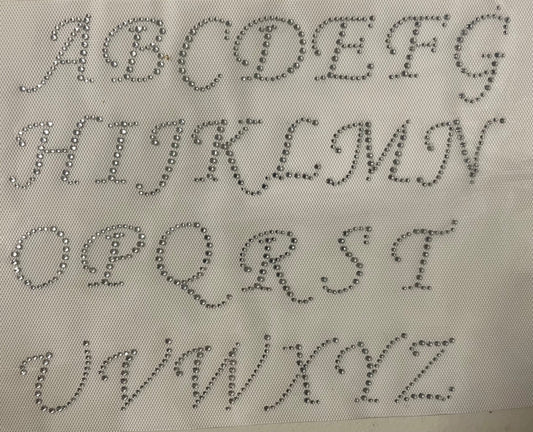 A B C D E F G
H I J K L M N
O P Q R S T
U V W X Y Z